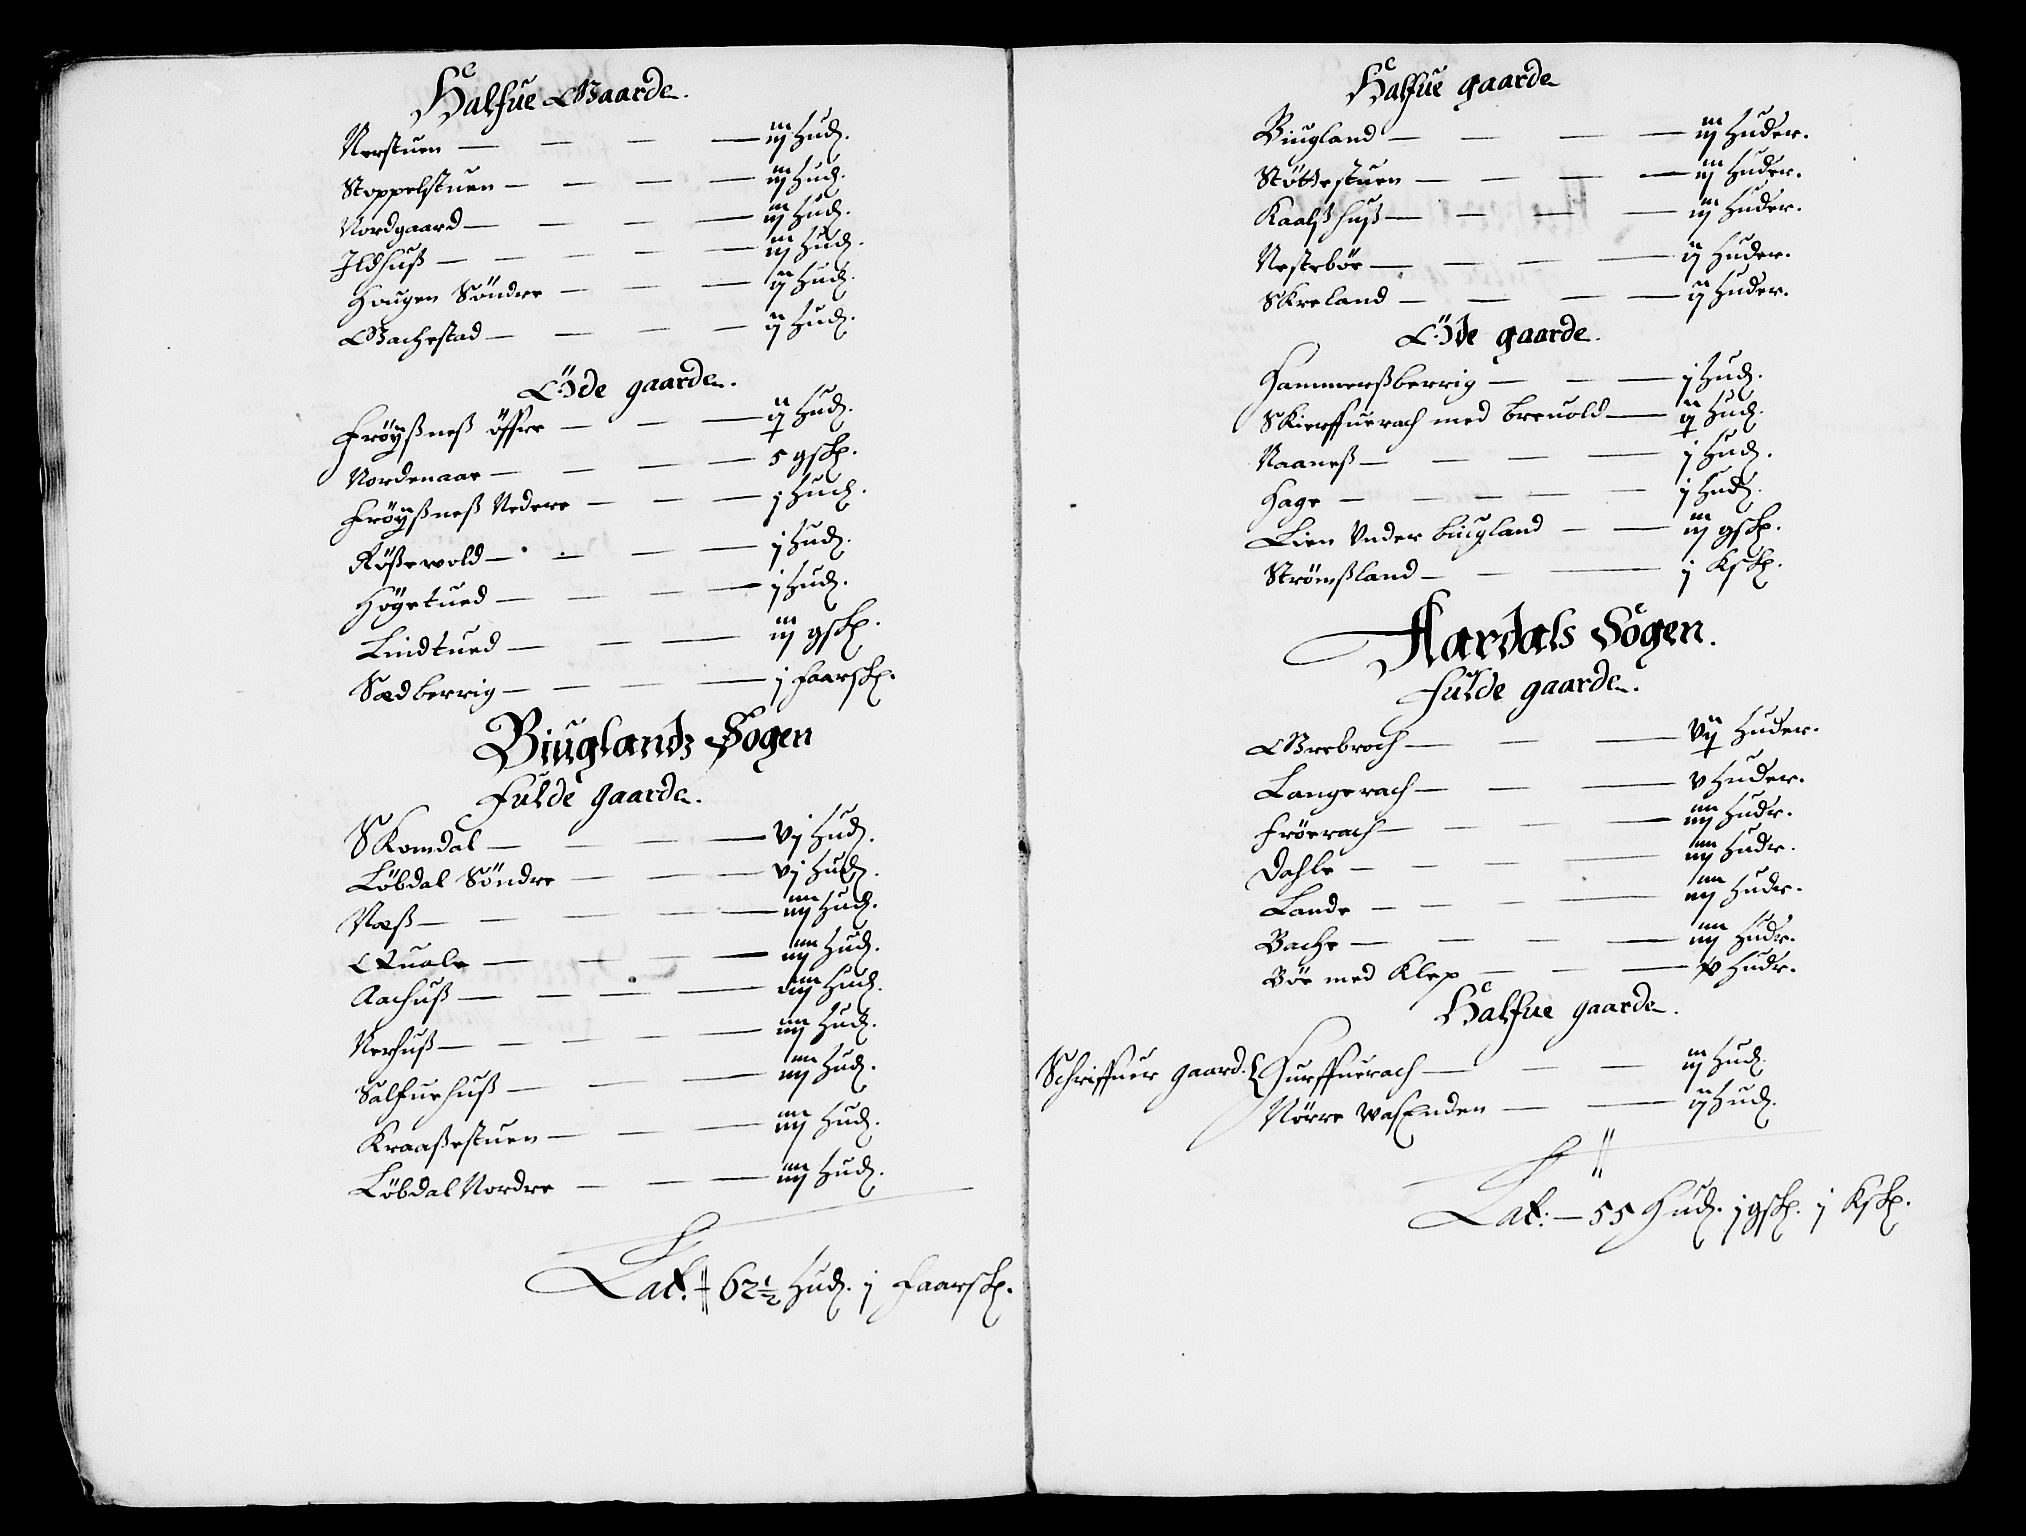 Halfue Gaarde.
Nerstuen — — — — iij Hud.
Stoppelstuen — — — — iij Hud.
Nordgaard — — — — iij Hud.
Ildhuß — — — — iij Hud.
Hougen Söndre — — — ij Hud.
Gachestad — — — — ij Hud.
Öde gaarde.
Fröyßneß öffre — — — ij Hud.
Nordenaar — — — — 5 gskp.
Fröyßneß Nedere — — — j Hud.
Rößewold — — — — j Hud.
Högetued — — — — j Hud.
Lindtued — — — iij gskp.
Sædberrig — — — — j faarskp.
Biuglandz Sogen
Fulde gaarde.
Skomdal — — — — vj Hud.
Löbdal Söndre — — — vj Hud.
Næß — — — — — iiij Hud.
Quale — — — — iiij Hud.
Aachuß — — — — iiij Hud.
Nerhuß — — — — — iiij Hud.
Salfuehuß — — — iiij Hud.
Kraaßestuen — — — iiij Hud.
Löbdal Nordre — — — iiij Hud.
Lat. 62½ Hud. j faarskp.
Halfue gaarde
Biugland — — — iij Huder.
Stöttestuen — — — — iij Huder.
Kaalßhuß — — — — iij Huder.
Nesteböe — — — — ij Huder.
Skreland — — — — ij Huder.
Öde gaarde.
Hammerßberrig — — — j Hud.
Skierffuerach med breuold — ij Hud.
Naaneß — — — — j Hud.
Hage — — — — — j Hud.
Lien Vnder biugland — — iij gskp.
Strömßland — — — j Kskp.
Aardals Sogen.
Fulde gaarde.
Grebroch — — — vij Huder.
Langerach — — — v Huder.
Fröerach — — — — iiij Hudr.
Dahle — — — — iiij Hudr.
Lande — — — — iiij Hudr.
Bache — — — — iiij Hudr.
Böe med Klep — — — v Hudr.
Halfue gaarde.
Schriffuer gaard. { Hurffuerach — — — iij Hud.
Nörre wasEnden — — ij Hud.
Lat: — 55 Hud. j gskp. j Kskp.